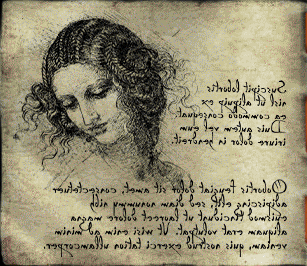 Suscipit lobortis
nisl ut aliquip ex
ea commodo consequat.
Duis autem vel eum
iriure dolor in hendrerit.
feugiat dolor sit amet, consectetuer
adipiscing elit, sed diam nonummy nibh
euismod tincidunt ut laoreet dolore magna
aliquam erat volutpat. Ut wisi enim ad minim
veniam, quis nostrud exerci tation ullamcorper.